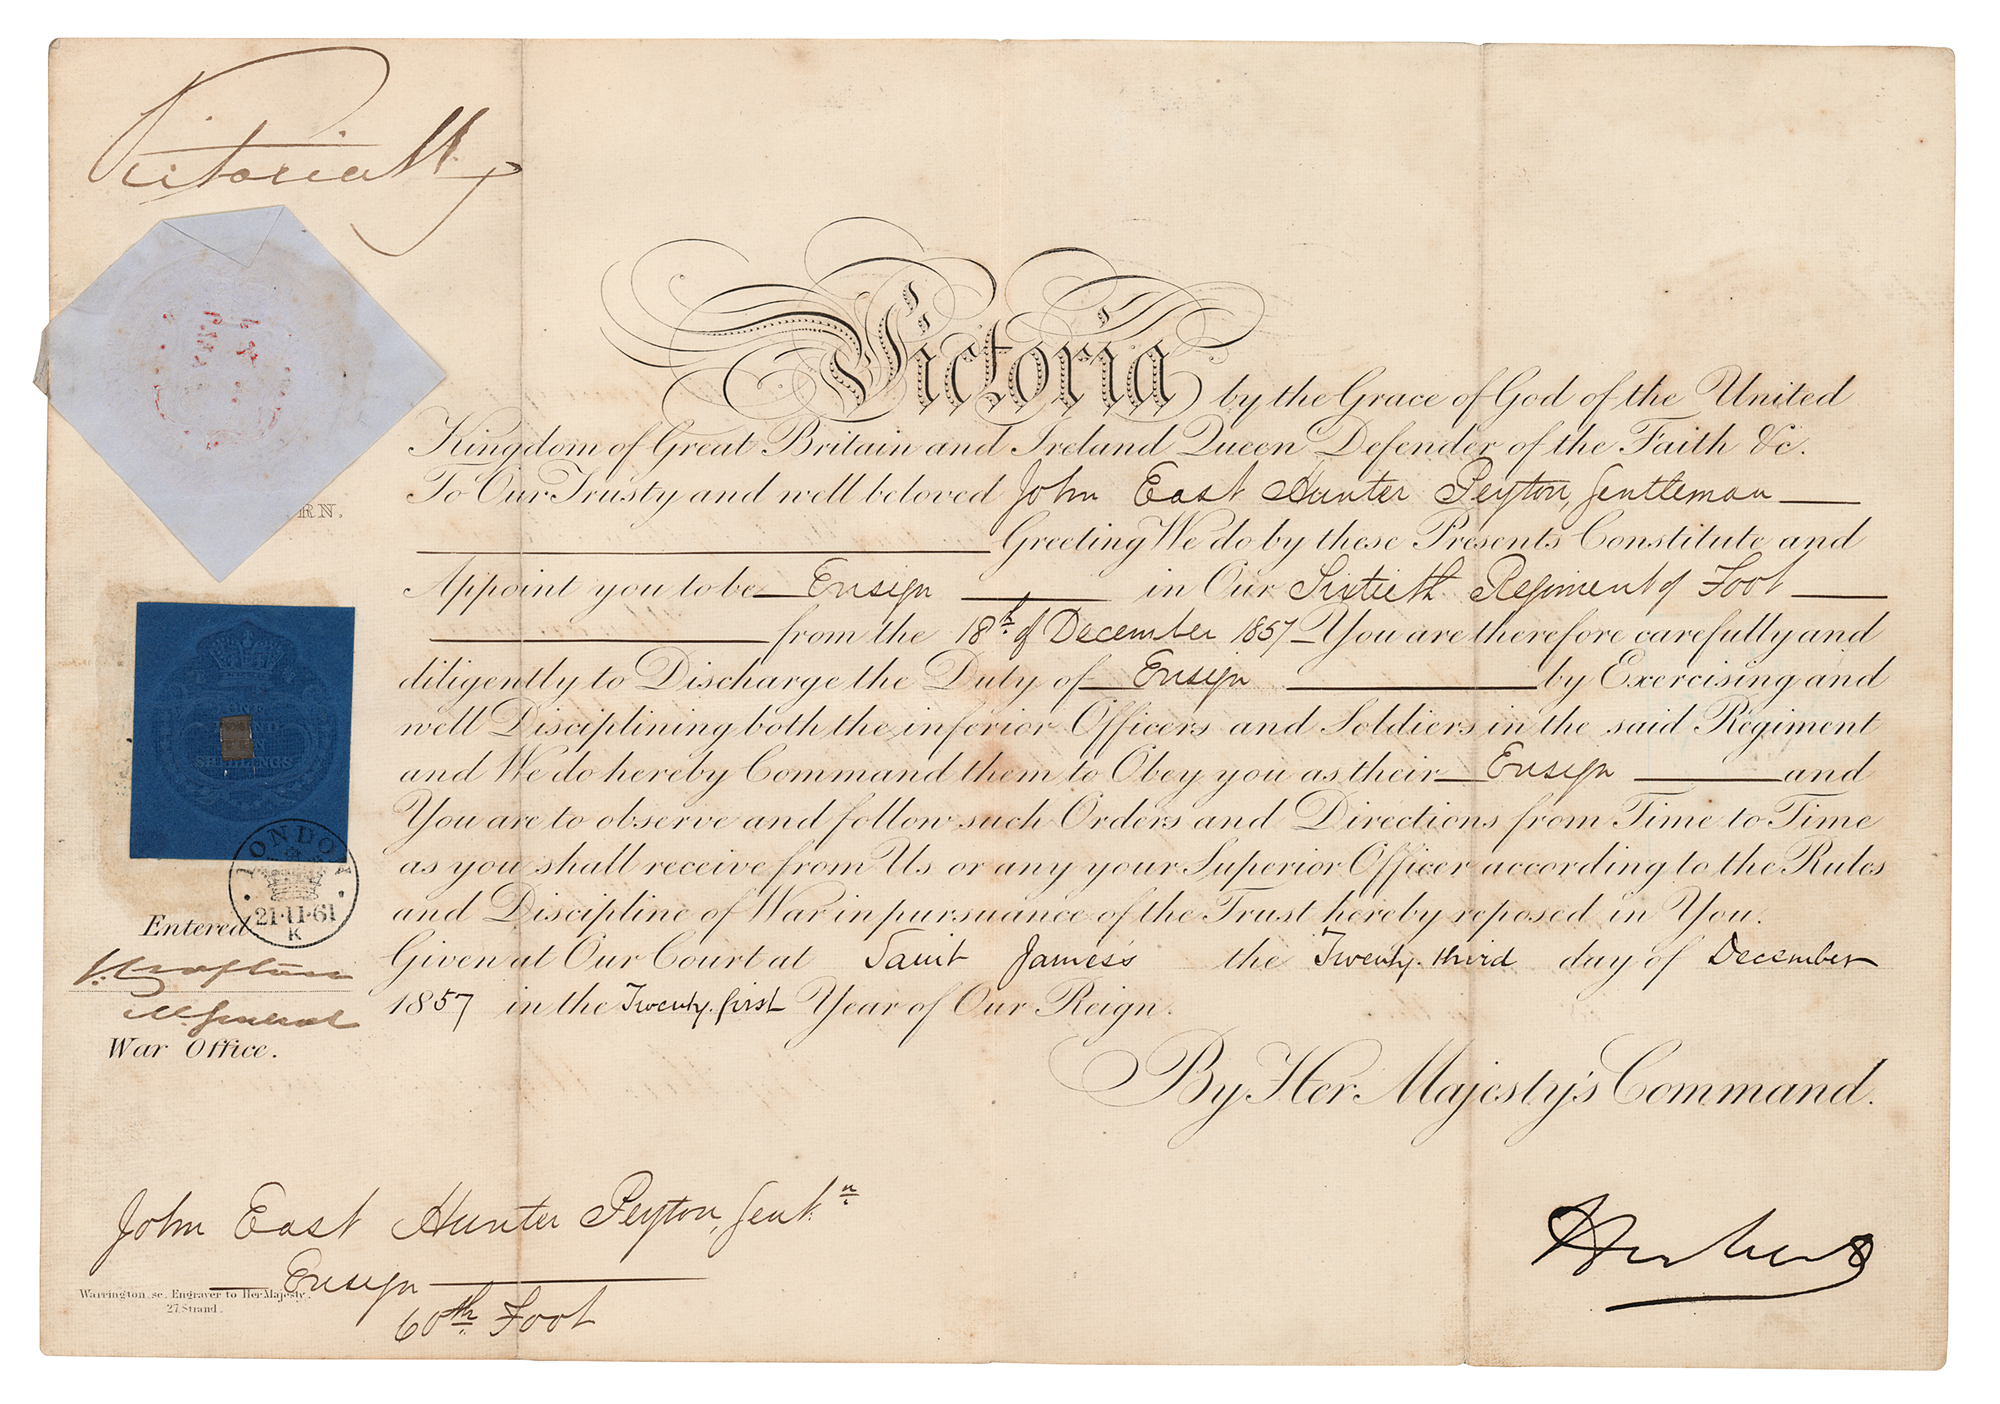 Victoria R
Victoria by the Grace of God of the United
Kingdom of Great Britain and Ireland Queen Defender of the Faith &c.
To Our Trusty and well beloved John East Hunter Peyton, Gentleman
Greeting We do by these Presents Constitute and
Appoint you to be Ensign in Our Sixtieth Regiment of Foot
from the 18th of December 1857 You are therefore carefully and
diligently to Discharge the Duty of Ensign by Exercising and
well Disciplining both the inferior Officers and Soldiers in the said Regiment
and We do hereby Command them to Obey you as their Ensign and
You are to observe and follow such Orders and Directions from Time to Time
as you shall receive from Us or any your Superior Officer according to the Rules
and Discipline of War in pursuance of the Trust hereby reposed in You.
Given at Our Court at Saint James's the Twenty third day of December
1857 in the Twenty first Year of Our Reign.
By Her Majesty's Command.
RN.
SHILLINGS
LONDON
21·11·61
K
Entered
War Office.
John East Hunter Peyton, Gentn
Ensign
60th Foot
Warrington sc. Engraver to Her Majesty.
27, Strand.